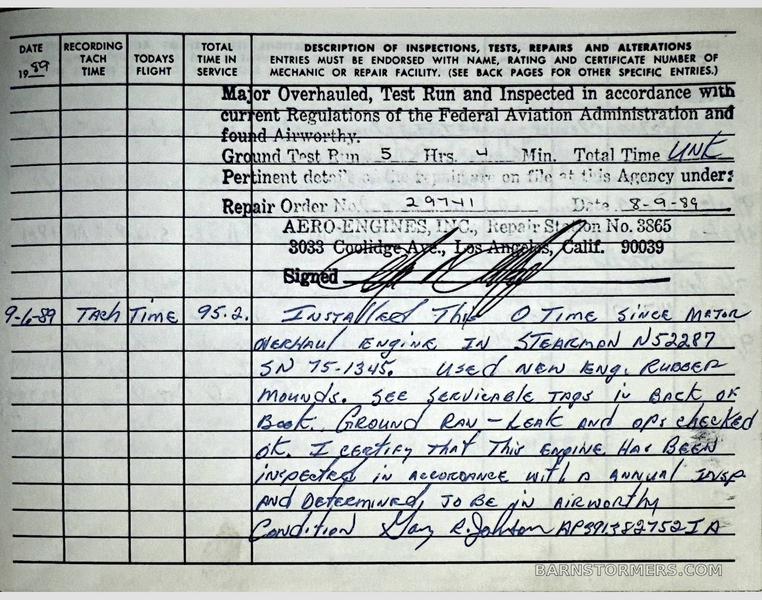 DATE
19 89
RECORDING TACH TIME
TODAYS FLIGHT
TOTAL TIME IN SERVICE
DESCRIPTION OF INSPECTIONS, TESTS, REPAIRS AND ALTERATIONS
ENTRIES MUST BE ENDORSED WITH NAME, RATING AND CERTIFICATE NUMBER OF
MECHANIC OR REPAIR FACILITY. (SEE BACK PAGES FOR OTHER SPECIFIC ENTRIES.)
Major Overhauled, Test Run and Inspected in accordance with
current Regulations of the Federal Aviation Administration and
found Airworthy.
Ground Test Run 5 Hrs. 4 Min. Total Time UNK
Pertinent details of the repair are on file at this Agency under:
Repair Order No. 29741 Date 8-9-89
AERO-ENGINES, INC., Repair Station No. 3865
3033 Coolidge Ave., Los Angeles, Calif. 90039
Signed
9-6-89 TACH TIME 95.2. INSTALLED THIS O TIME SINCE MAJOR
OVERHAUL ENGINE IN STEARMAN N52287
SN 75-1345. USED NEW ENG. RUBBER
MOUNDS. SEE SERVICABLE TAGS IN BACK OF
BOOK. GROUND RAN - LEAK AND OPS CHECKED
OK. I CERTIFY THAT THIS ENGINE HAS BEEN
INSPECTED IN ACCORDANCE WITH A ANNUAL INSP
AND DETERMINED TO BE IN AIRWORTHY
CONDITION Gary R. AP391382752IA
BARNSTORMERS.COM